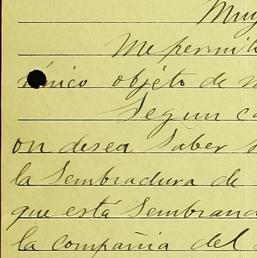 Muy
Me permit
único objeto de
Segun ca
on desea saber
la Sembradura de
que está Sembrand
la compañia del